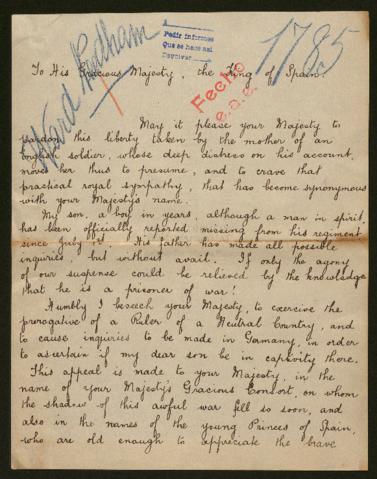 Pedir informes
Que se hace así
1785
To His Gracious Majesty, the King of Spain.
Fecho
May it please your Majesty to
pardon this liberty taken by the mother of an
English soldier, whose deep distress on his account,
moves her thus to presume, and to crave that
practical royal sympathy, that has become synonymous
with your Majesty's name.
My son, a boy in years, although a man in spirit,
has been officially reported missing from his regiment
since July 1st. His father has made all possible
inquiries, but without avail. If only the agony
of our suspense could be relieved by the knowledge
that he is a prisoner of war!
Humbly I beseech your Majesty, to exercise the
prerogative of a Ruler of a Neutral Country, and
to cause inquiries to be made in Germany, in order
to ascertain if my dear son be in captivity there.
This appeal is made to your Majesty, in the
name of your Majesty's Gracious Consort, on whom
the shadow of this awful war fell so soon, and
also in the names of the young Princes of Spain,
who are old enough to appreciate the brave